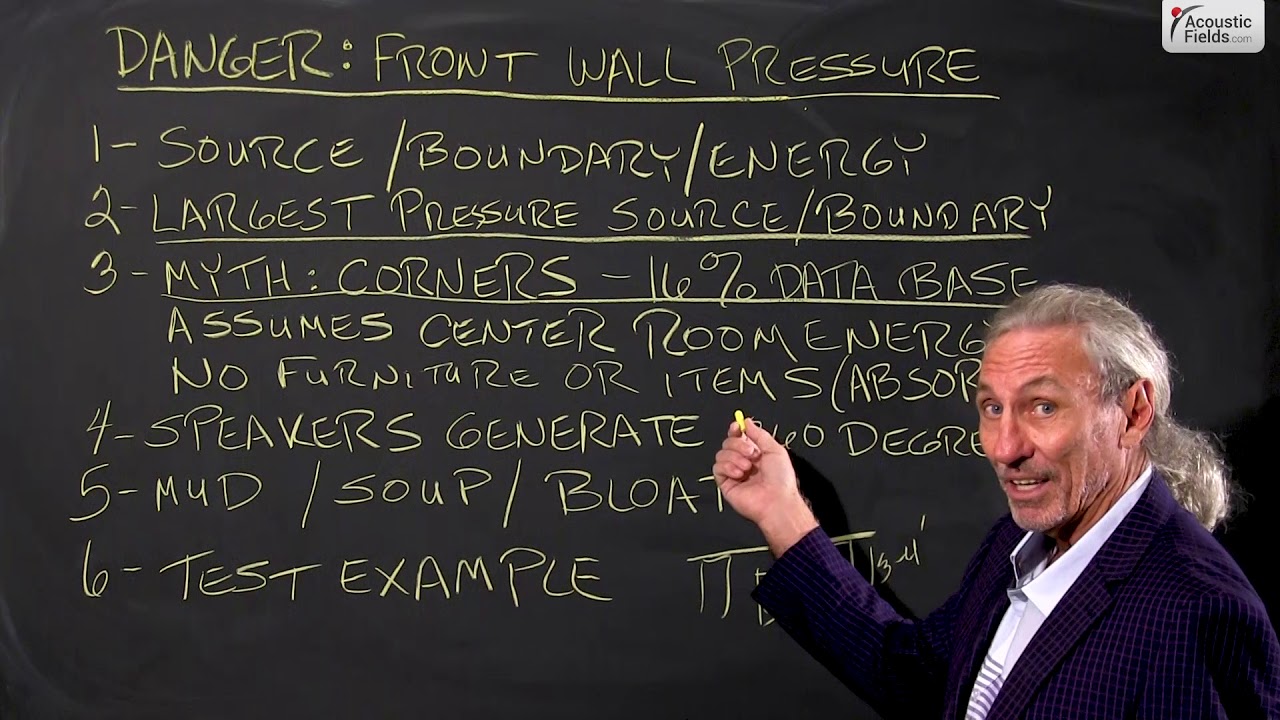 Acoustic
Fields.com
DANGER: FRONT WALL PRESSURE
1- SOURCE /BOUNDARY/ENERGY
2- LARGEST PRESSURE SOURCE/BOUNDARY
3- MYTH: CORNERS - 16% DATA BASE
ASSUMES CENTER ROOM ENERGY
NO FURNITURE OR ITEMS (ABSOR
4- SPEAKERS GENERATE 360 DEGRE
5- MUD /SOUP/ BLOAT
6- TEST EXAMPLE
3-4'